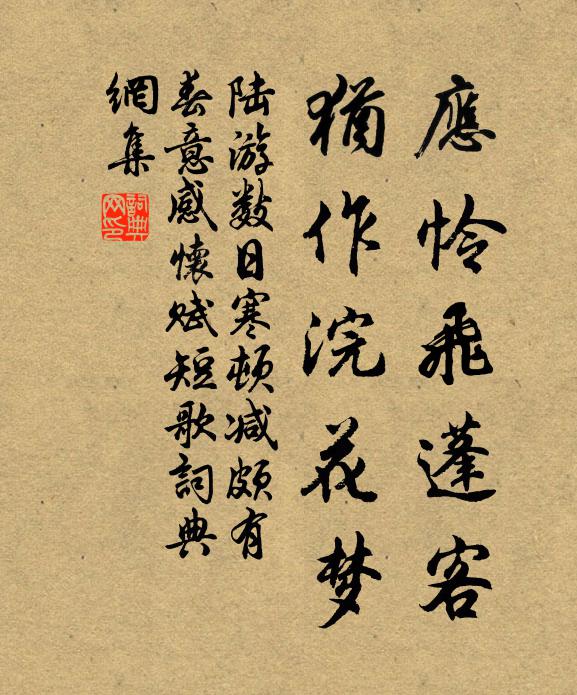 應怜飛蓬客
猶作浣花梦
陆游数日寒頓减頗有
春意感懷赋短歌詞典
網集
詞典网印